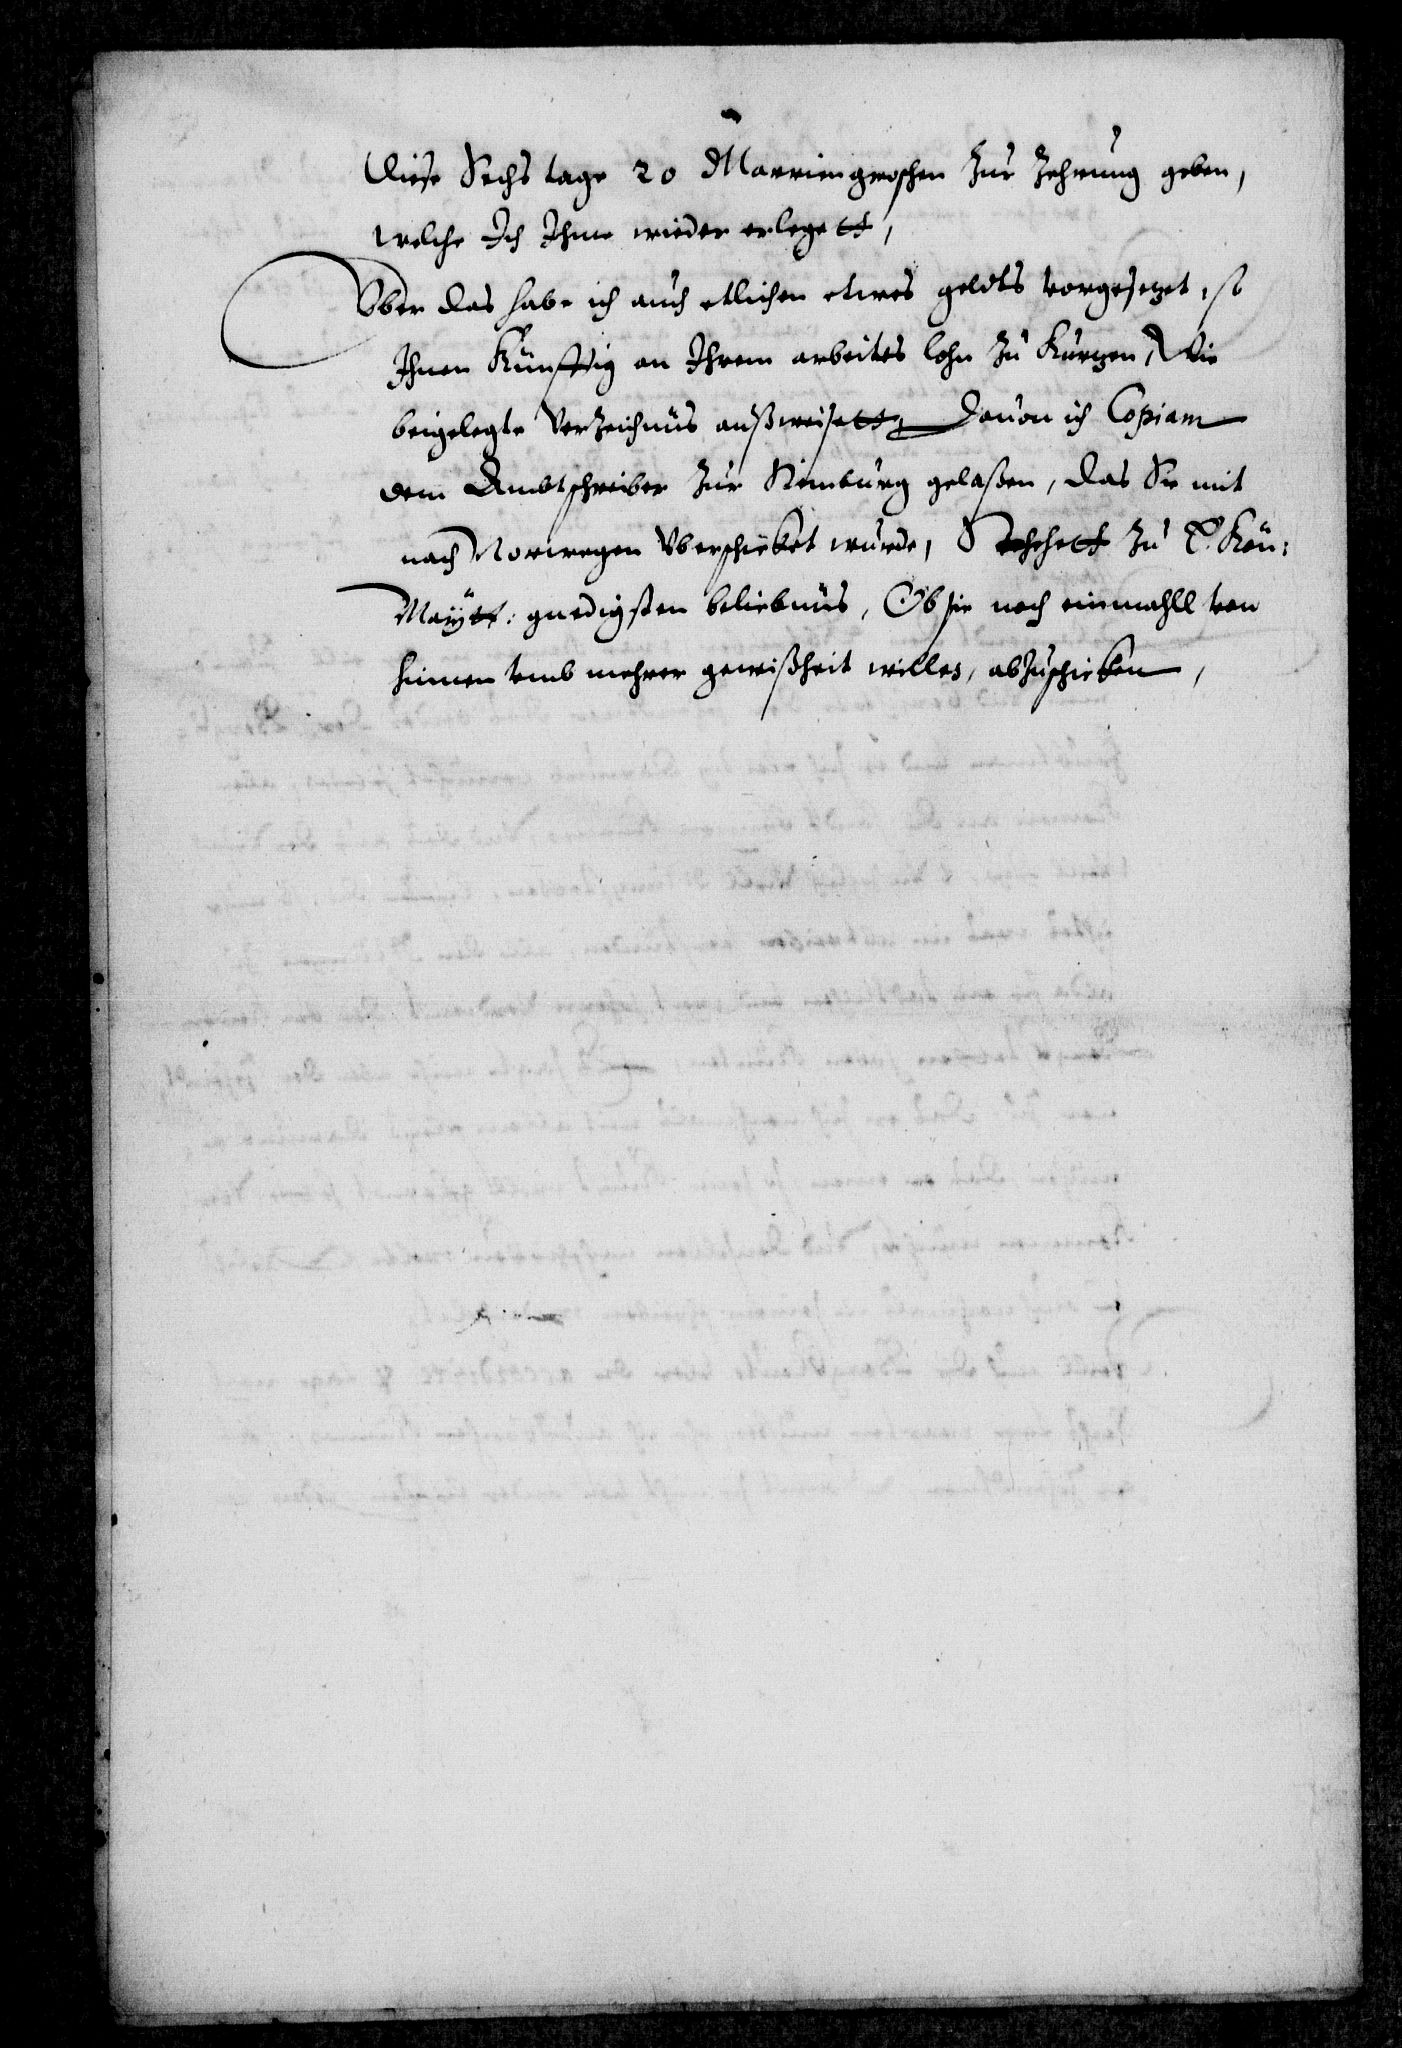 Diese Sechs tage 20 Marriengroschen Zur Zehrung geben,
welche Ich Ihme wieder erlegett,
Vber das habe ich auch etlichen etwes geldts vorgesetzet, so
Ihnen Künfftig an Ihrem arbeites lohn Zu Kurtzen, Wie
beigelegte Verzeichnus außweisett, Dauon ich Copiam
dem Ambtschreiber Zur Steinburg gelaßen, das Sie mit
nach Norwegen vberschicket wurde, Stehehett Zu E. Kön:
Maÿtt: gnedigsten beliebnus, Ob sie noch einmahll von
hinnen vmb mehrer gewißheit willes, abzuschicken,